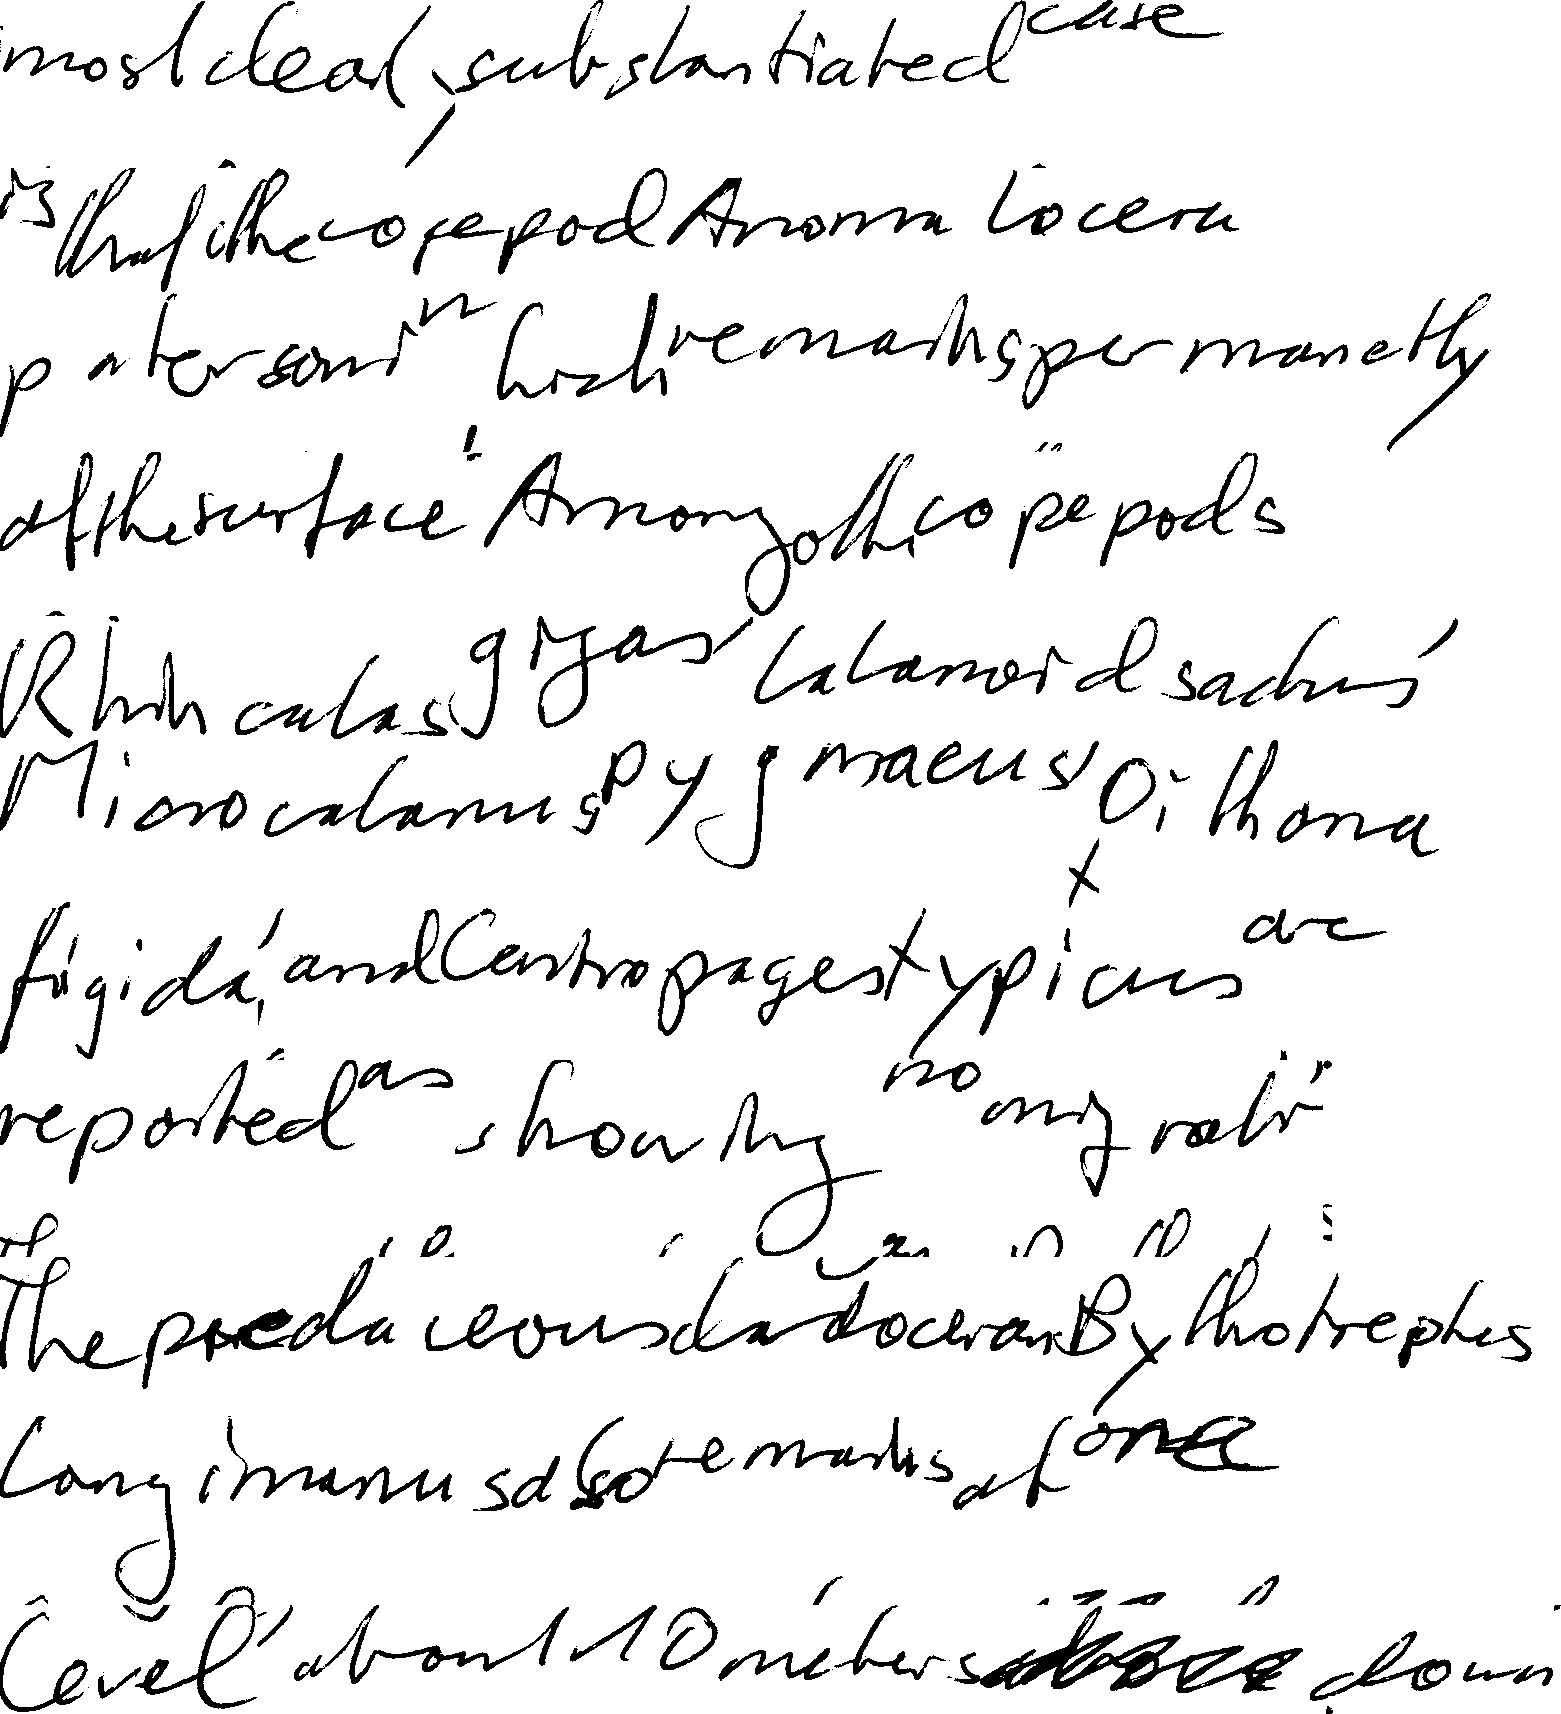 most clear, substantiated case
is that the copepod Anomalocera
patersoni which remains permanetly
at the surface. Among other copepods
Rhincalas gigas, Calanoid sadus,
Microcalanus pygmaeus, Oithona
frigida, and Centropages typicus are
reported as showing no migrati
The predaceous cladoceran Bythotrephes
longimanus also remains at one
level, about 10 meters down